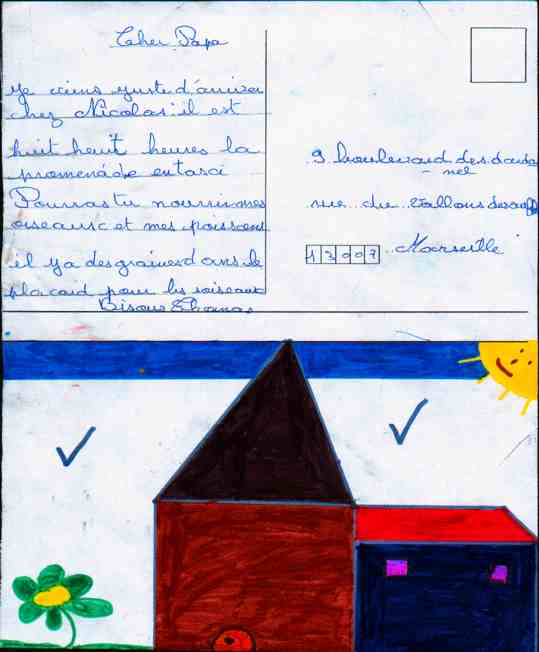 Cher Papa
Je viens juste d'arriver
chez Nicolas: il est
huit heures la
promenade en taxi
Pourras tu nourrir mes
oiseaux et mes poissons
il y a des graines dans le
placard pour les oiseaux
Bisous Thomas
9 boulevard des
rue du Vallon des
13007 Marseille